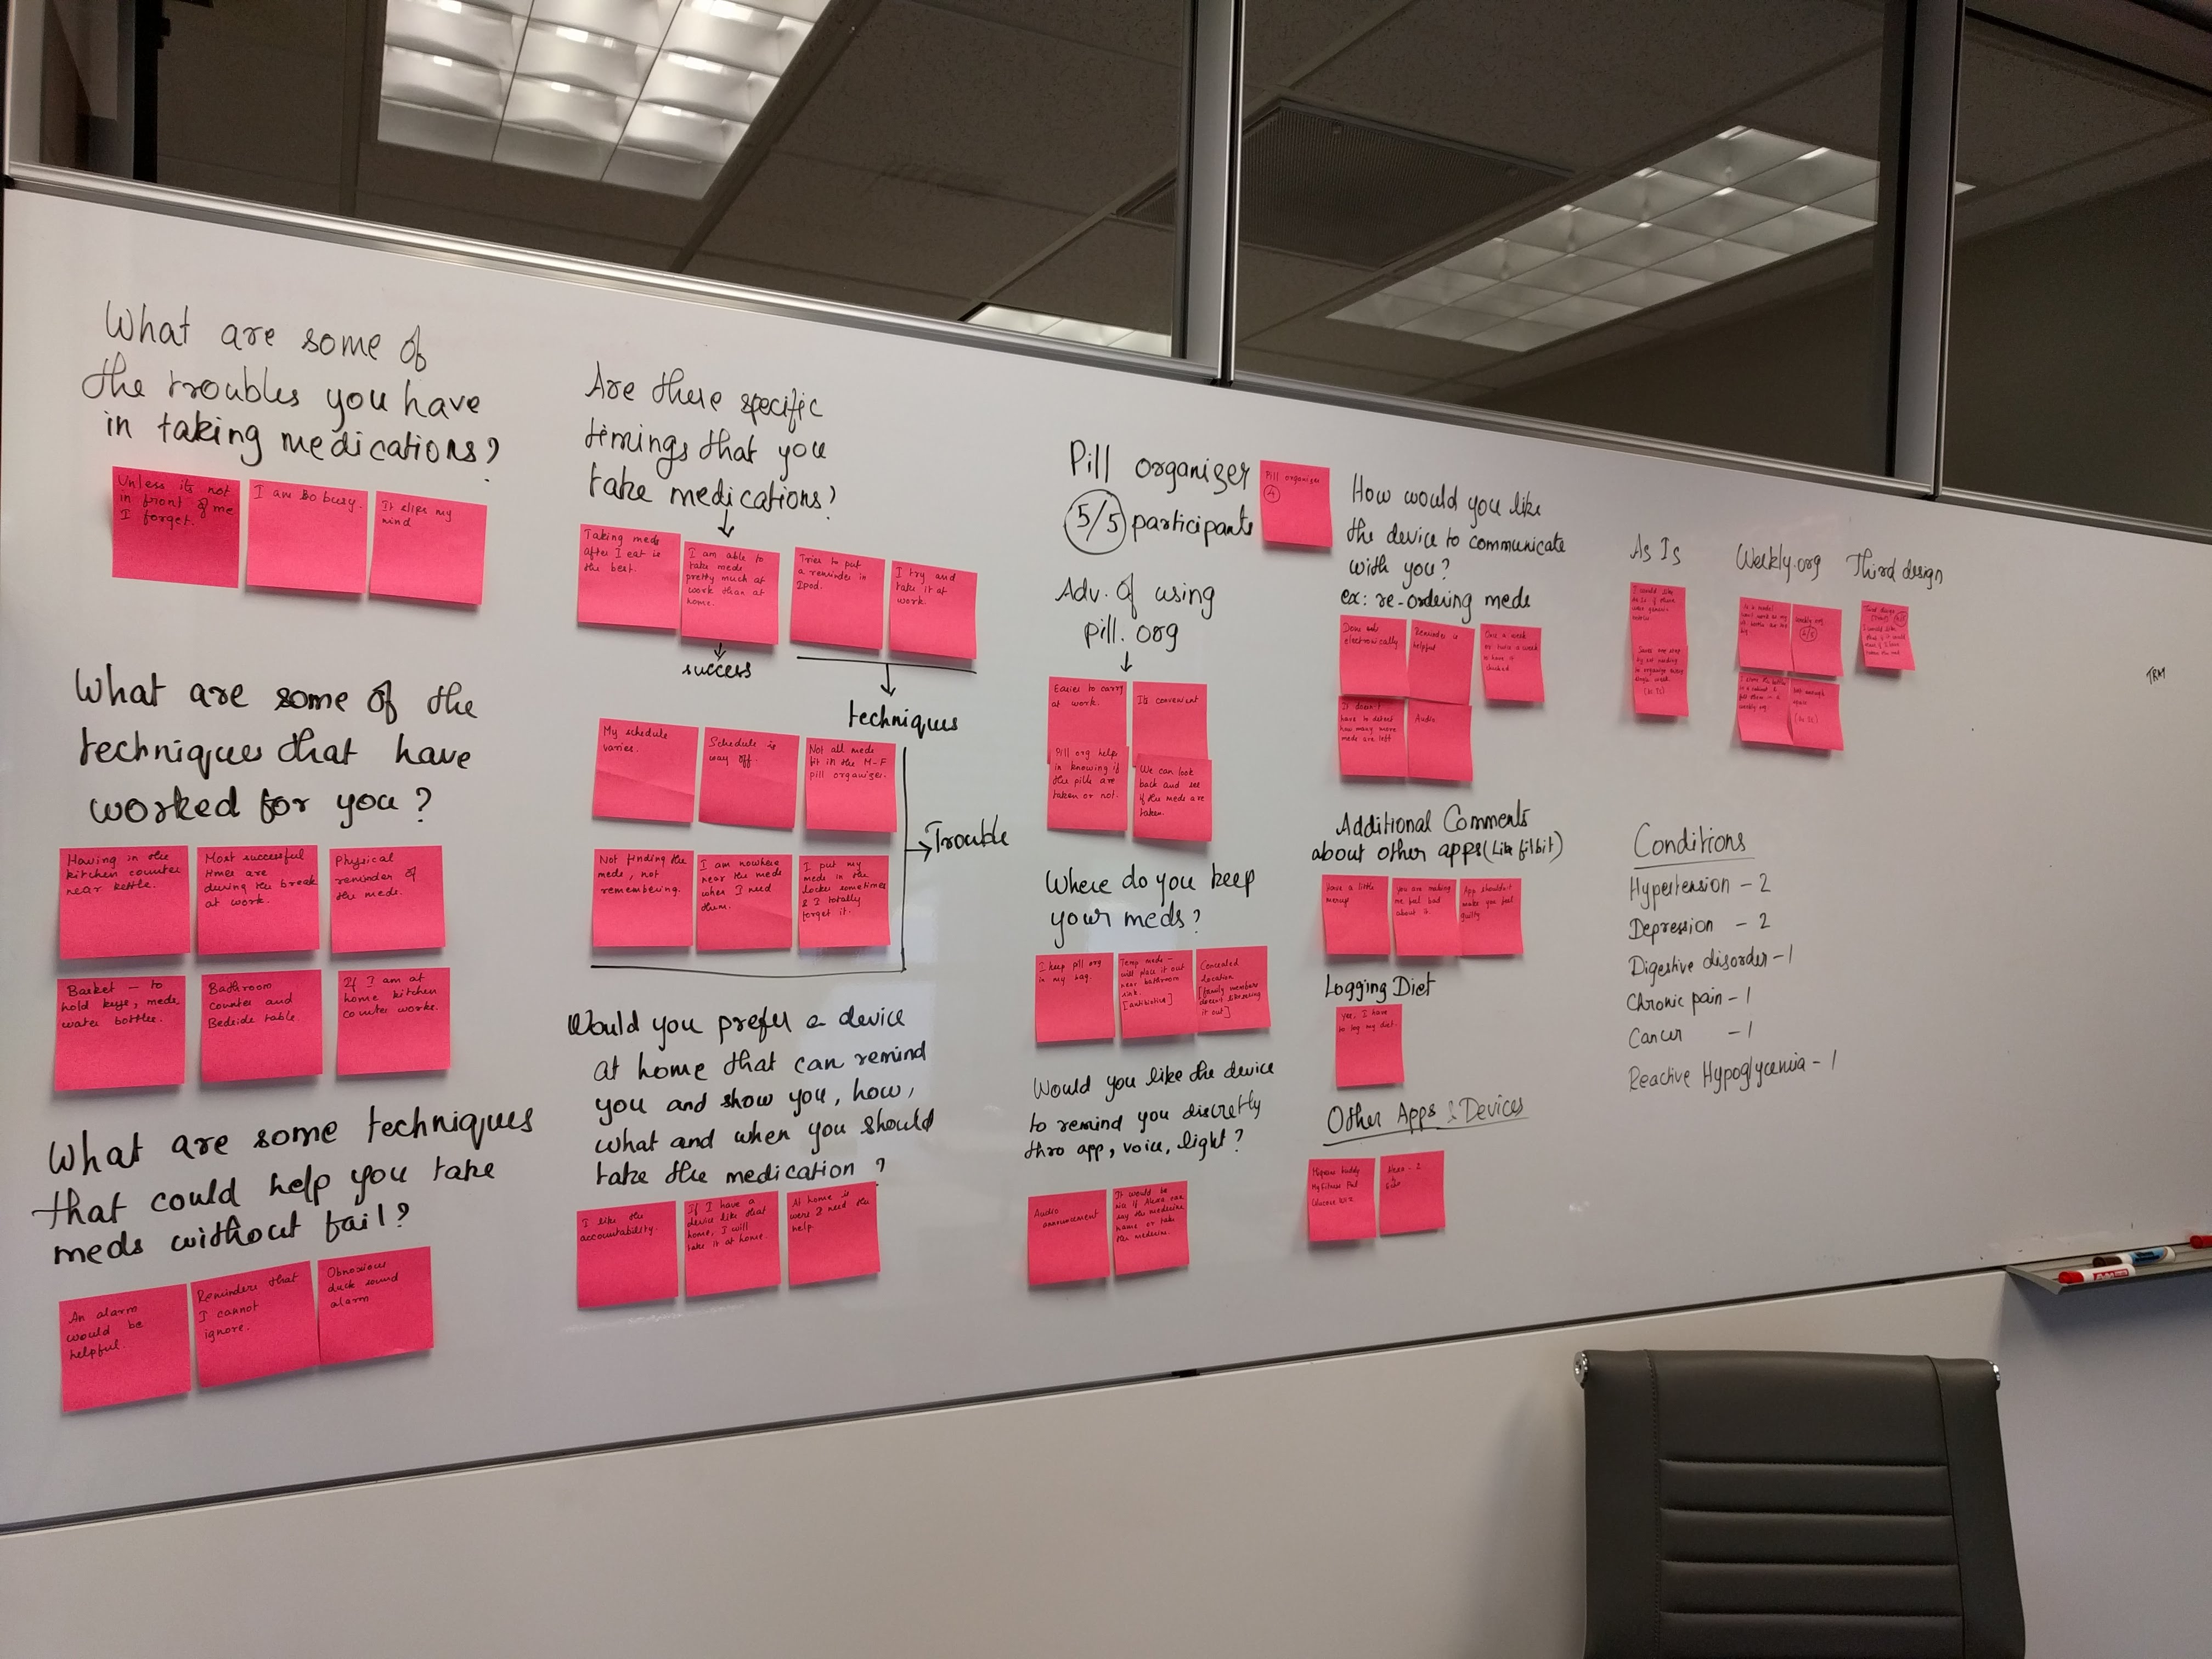 What are some of
the troubles you have
in taking medications?
Unless its not
in front of me
I forget.
I am so busy.
It slips my
mind
What are some of the
techniques that have
worked for you?
Having in the
kitchen counter
near kettle.
Most successful
times are
during the break
at work.
Physical
reminder of
the meds.
Basket - to
hold keys, meds
water bottles.
Bathroom
counter and
Bedside table.
If I am at
home kitchen
counter works.
What are some techniques
that could help you take
meds without fail?
An alarm
would be
helpful.
Reminders that
I cannot
ignore.
Obnoxious
duck sound
alarm
Are there specific
timings that you
take medications?
Taking meds
after I eat is
the best.
I am able to
take meds
pretty much at
work than at
home.
Tries to put
a reminder in
Ipod.
I try and
take it at
work.
success
techniques
My schedule
varies.
Schedule is
way off.
Not all meds
fit in the M-F
pill organizer.
Not finding the
meds, not
remembering.
I am nowhere
near the meds
when I need
them.
I put my
meds in the
locker sometimes
& I totally
forget it.
Trouble
Would you prefer a device
at home that can remind
you and show you, how,
what and when you should
take the medication?
I like the
accountability.
If I have a
device like that
home, I will
take it at home.
At home is
were I need the
help.
Pill organizer
5/5 participants
Pill organizer
4
Adv. of using
pill. org
Easier to carry
at work.
Its convenient
Pill org helps
in knowing if
the pills are
taken or not.
We can look
back and see
if the meds are
taken.
Where do you keep
your meds?
I keep pill org
in my bag.
Temp meds -
will place it out
near bathroom
sink.
[antibiotics]
Concealed
location
[family members
doesn't like seeing
it out]
Would you like the device
to remind you discretly
thro app, voice, light?
Audio
announcement
It would be
nice if Alexa can
say the medicine
name or take
the medicine.
How would you like
the device to communicate
with you?
ex: re-ordering meds
Does not
electronically
Reminder is
helpful
Once a week
or twice a week
to have it
checked
It doesn't
have to detect
how many more
meds are left
Audio
Additional Comments
about other apps (Like fitbit)
Have a little
You are making
me feel bad
about it.
App shouldn't
make you feel
guilty
Logging Diet
Yes, I have
to log my diet.
Other Apps & Devices
buddy
My fitness Pal
Alexa - 2
As Is
I would like
Weekly.org
Weekly org
Third design
Third design
I would like
TRM
Conditions
Hypertension - 2
Depression - 2
Digestive disorder - 1
Chronic pain - 1
Cancer - 1
Reactive Hypoglycemia - 1